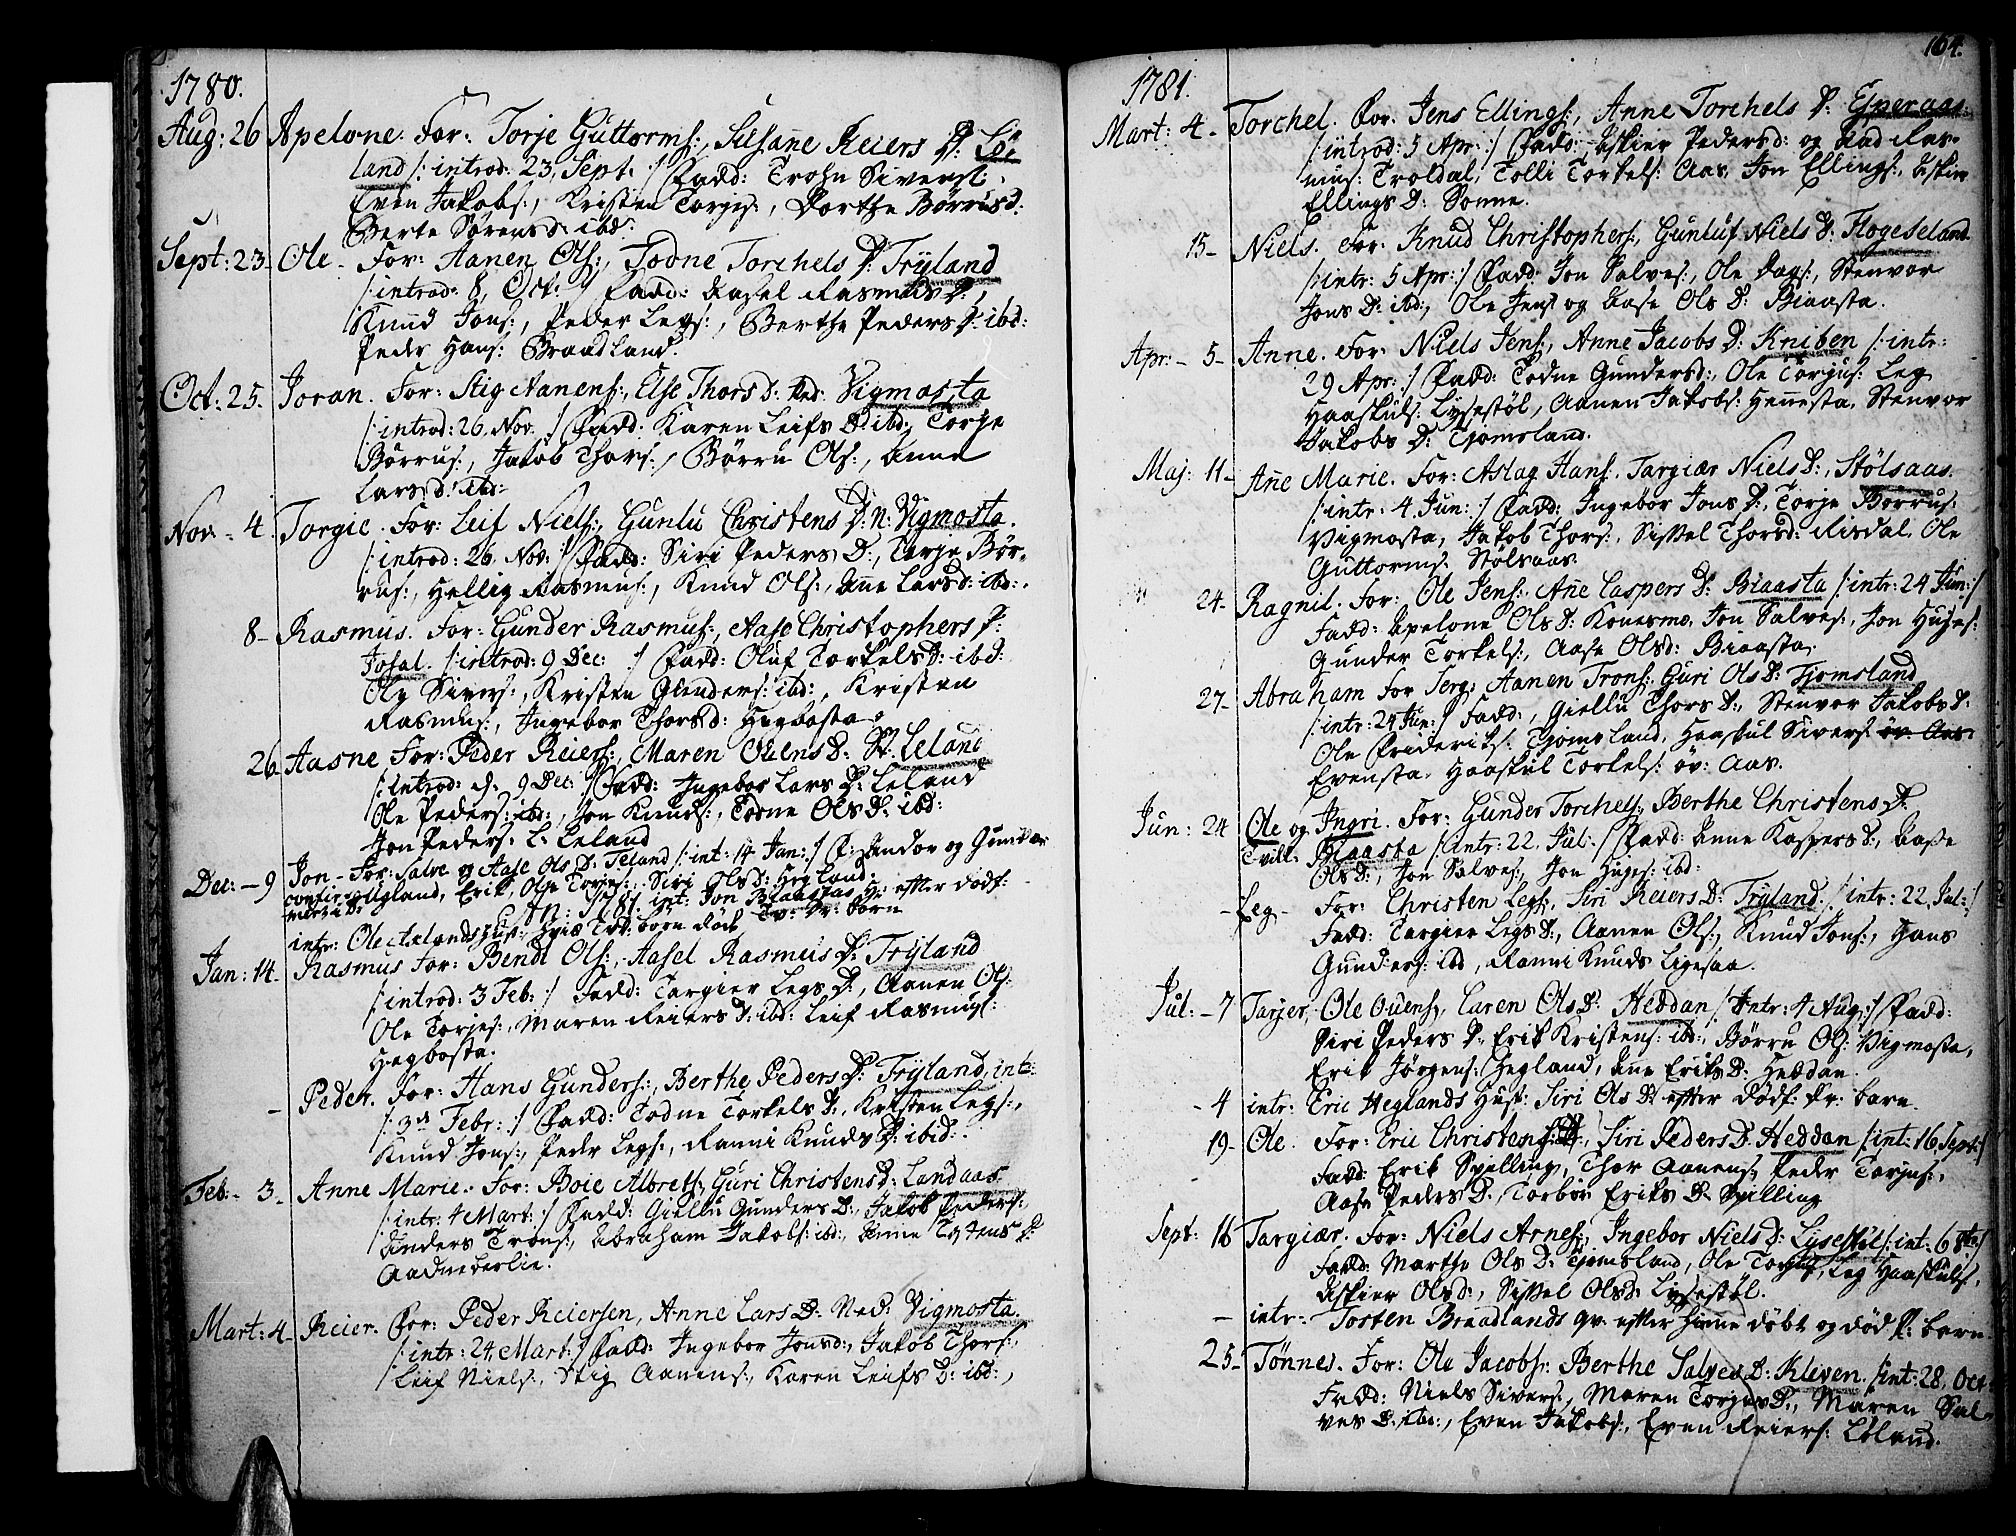 1780.
Aug: 26 Apelone. For: Torje Guttorms:, Susañe Reiers D: Lö
land /: introd: 23, Sept. :/ Fadd: Trohn Sivers:
Even Jakobs:, Kristen Torjes:, Dorthe Börrusd:
Berte Sörensd: ibd:
Sept: 23- Ole - For: Aanen Ols:, Todne Torchels D: Trÿland
/: introd: 8, Oct: :/ Fadd: Aasel Rasmus D:,
Knud Jons:, Peder Legs:, Berthe Peders D: ibd:
Peder Hans: Braadland.
Oct: 25. Joran. For: Stig Aanens:, Else Thors D: Ned: Vigmosta
/: introd: 26. Nov. :/ Fadd: Karen Leifs D: ibd:, Torje
Börrus:, Jakob Thors:, Börru Ols:, Anne
Larsd: ibd:
Nov - 4. Torgie. For: Leif Niels:, Gunlu Christens D: N: Vigmosta.
/: introd: 26. Nov: :/ Fadd: Siri Peders D:, Torje Bör-
rus:, Hellig Rasmus:, Knud Ols:, Añe Larsd: ibd:.
8- Rasmus. For: Gunder Rasmus:, Aase Christophers D:
Fosal. /: introd: 9 Dec: :/ Fadd: Oluf Torkels D: ibd:
Ole Sivers:, Kristen Gunders: ibd:, Kristen
Rasmus:, Ingebor Thorsd: Hegbosta.
26 Aasne For: Peder Reiers:, Maren Ouens D: St: Leland
/: Introd: d. 9 Dec: :/ Fadd: Ingebor Lars D: Leland
Ole Peders: ibd:, Jon Knuds:, Todne Ols D: ibd:
Jon Peders: L: Leland
Dec: - 9 Jon - For: Salve og Aase Ols D: Leland /: int: 14 Jan: :/ F: og Gunder
Ugland, Erik, Ole Torjes:, Siri Olsd: Hegland:
An: 1781. int: Jon Biaastas H: efter dödf:
intr: Ole Lelands Hus: Tv: börn död Tv: Dr: börn
Jan: 14. Rasmus For: Bendt Ols:, Aasel Rasmus D: Trÿland
/: introd: 3 Feb: :/ Fadd: Targier Legs D:, Aanen Ols:
Ole Torjes:, Maren Reiers D: ibd: Leif Rasmus:
Hegbosta.
- Peder. For: Hans Gunders:, Berthe Peders D: Trÿland, int:
/: 3die Febr: :/ Fadd: Todne Torkels D:, Kristen Legs:,
Knud Jons:, Peder Legs:, Ranni Knuds D: ibid:.
Feb: - 3. Anne Marie. For: Boie Albrets:, Guri Christensd: Landaas
/: intr: 4 Mart: :/ Fadd: Giellu Gunders D:, Jakob Peders:
Anders Trons:, Abraham Jakobs: ibd:, Anne D:
Aadneberlie.
Mart: 4- Reier. For: Peder Reiersen, Anne Lars D: Ned: Vigmosta.
/: intr: 24 Mart: :/ Fadd: Ingebor Jonsd:, Jakob Thors:,
Leif Niels:, Stig Aanens:, Karen Leifs D: ibd:,
164.
1781.
Mart: 4- Torchel. For: Jens Ellings:, Anne Torchels D: Eperaas.
/: introd: 5 Apr: :/ Fadd: Askier Pedersd: og Aad Ras-
mus: Troldal, Tolli Torkels: Aas, Jon Ellings:, Askier
Ellings D: Sonne.
15- Niels. For: Knud Christophers:, Gunluf Niels D: Flogeseland.
/: intr: 5 Apr: :/ Fadd: Jon Salves:, Ole Dags:, Stenvor
Jons D: ibd:, Ole Jens: og Aase Ols D: Biaasta.
Apr: - 5- Anne. For: Niels Jens:, Anne Jacobs D: Kniben /: intr:
29 Apr: :/ Fadd: Todne Gundersd:, Ole Torjus: Leg
Haaskuls: Lysestöl, Aanen Jakobs: Heñesta, Stenvor
Jakobs D: Tjomsland.
Maj: 11- Añe Marie. For: Aslag Hans:, Targiær Niels D:, Stölsaas.
/: intr: 4 Jun: :/ Fadd: Ingebor Jons D:, Torje Börrus:
Vigmosta, Jakob Thors:, Sissel Thorsd: Risdal, Ole
Guttorms: Stölsaas.
24- Ragnil. For: Ole Jens:, Añe Caspers D: Biaasta /: intr: 24 Jun: :/
Fadd: Apelone Ols D: Konesmo, Jon Salves:, Jon Hujes:
Gunder Torkels:, Aase Olsd: Biaasta.
27- Abraham For Serg: Aanen Trons:, Guri Ols D: Tjomsland
/: intr: 24 Jun: :/ Fadd:, Giellu Thors D:, Stenvor Jakobs D:
Ole Frideriks: Tjomsland, Haaskul Sivers: öv: Aas
Evensta. Haaskul Torkels: öv: Aas.
Jun: 24 Ole og Ingri. For: Gunder Torchels:, Berthe Christens D:
Tvill: Biaasta /: intr: 22, Jul: :/ Fadd: Anne Kaspers D:, Aase
Ols D:, Jon Salves:, Jon Hujes: ibd:
- Leg - For: Christen Legs:, Siri Reiers D: Trÿland. /: intr: 22, Jul: :/
Fadd: Targier Legs D:, Aanen Ols:, Knud Jons:, Hans
Gunders: ibd, Ranni Knuds Ligesaa.
Jul: - 7 Tarjer, Ole Ouens:, Caren Ols D: Heddan /: Intr: 4 Aug: :/ Fadd:
Siri Peders D:, Erik Kristens: ibd:, Börru Ols: Vigmosta,
Erik Jörgens: Hegland, Añe Eriks D: Heddan.
- 4 intr: Eric Heglands Hust: Siri Ols D: efter Dödf: Dr: barn.
19- Ole. For: Eric Christens:, Siri Peders D: Heddan /: int: 16, Sept: :/
Fadd: Erik Spilling, Thor Aanens:, Peder Torjus:,
Aase Peders D:, Torbör Eriks D: Spilling
Sept: 16 Targiær. For: Niels Arnes:, Ingebor Niels D: Lysestöl /: int: 6 8br: :/
Fadd: Marthe Ols D: Tjomsland, Ole Torjus:, Leg Haaskuls:,
Askier Olsd:, Sissel Olsd: Lysestöl.
- intr: - Tosten Braadlands qv: efter hiemme döbt og död D: barn
25- Tönnes. For: Ole Jacobs: Berthe Salves D: Kleven. /: int: 28, Oct:
Fadd: Niels Sivers:, Maren Torjus D:, Maren Sal-
ves D: ibd:, Even Jakobs:, Even Reiers: Löland.